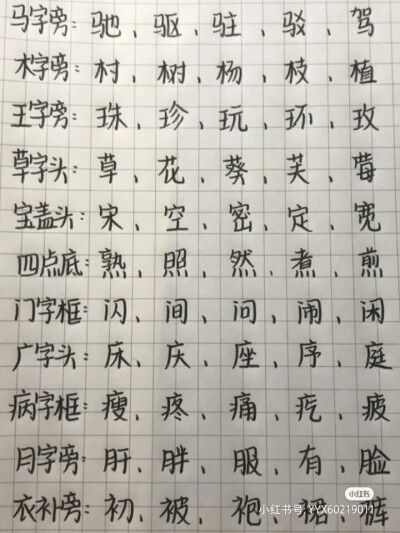 马字旁：驰、驱、驻、驳、驾
木字旁：村、树、杨、枝、植
王字旁：珠、珍、玩、环、玫
草字头：草、花、葵、芙、莓
宝盖头：宋、空、密、定、宽
四点底：熟、照、然、煮、煎
门字框：闪、间、问、闹、闲
广字头：床、庆、座、序、庭
病字框：瘦、疼、痛、疙、疲
月字旁：肝、胖、服、有、脸
小红书
衣补旁：初、被、袍、裙、裤
小红书号:YYX60219011